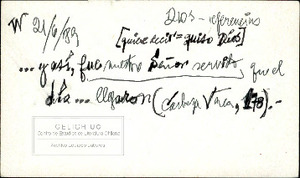 W 21/6/89 Dios - referencias
[quiere decir = quiso Dios]
... y así, fue nuestro Señor servido que el
día ... llegaron (Cabeza Vaca, 178).-
CELICH UC
Centro de Estudios de Literatura Chilena